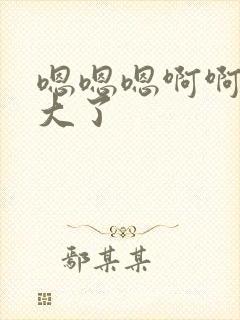 嗯嗯嗯啊啊
大了
鄢某某